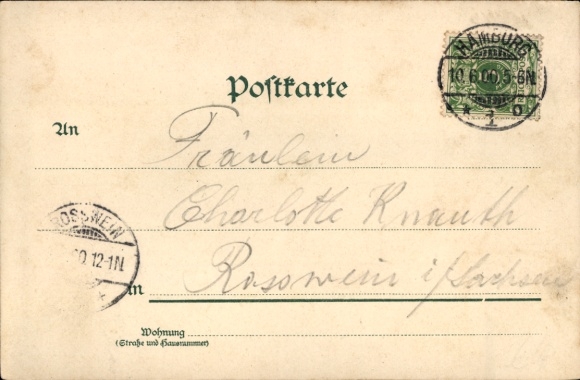 HAMBURG
10.6.00.5-6N
* 1 o
Postkarte
An
Fräulein
Charlotte Knauth
ROSSWEIN
00.12-1N
in Rosswein i/Sachsen
Wohnung
(Straße und Hausnummer)